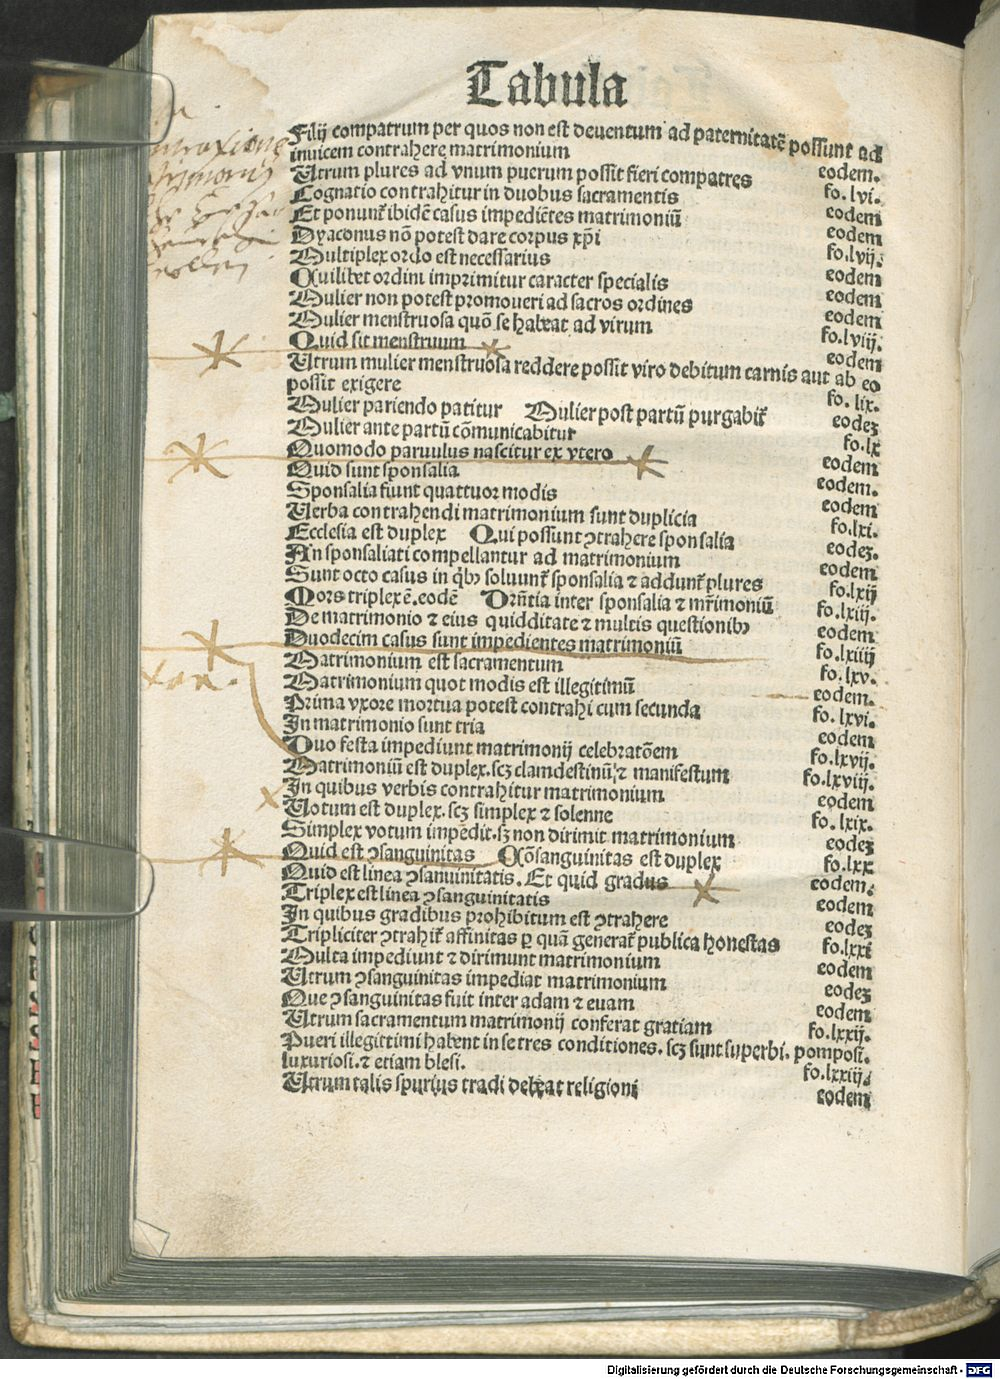 Tabula
Filij compatrum per quos non est deuentum ad paternitatē possunt ad
inuicem contrahere matrimonium eodem.
Utrum plures ad vnum puerum possit fieri compatres fo. lvi.
Cognatio contrahitur in duobus sacramentis eodem
Et ponunt᷑ ibidē casus impediētes matrimoniū eodem
Dyaconus nō potest dare corpus xp̄i fo.lvij.
Multiplex ordo est necessarius eodem
Quilibet ordini imprimitur caracter specialis eodem
Mulier non potest promoueri ad sacros ordines eodem
Mulier menstruosa quō se habeat ad virum fo.lviij.
Quid sit menstruum eodem
Utrum mulier menstruosa reddere possit viro debitum carnis aut ab eo
possit exigere fo. lix.
Mulier pariendo patitur Mulier post partū purgabit᷑ eodeꝫ
Mulier ante partū cōmunicabitur fo.lx
Quomodo paruulus nascitur ex vtero eodem
Quid sunt sponsalia eodem.
Sponsalia fiunt quattuor modis eodem
Uerba contrahendi matrimonium sunt duplicia fo.lxi.
Ecclesia est duplex Qui possunt ꝯtrahere sponsalia eodeꝫ.
An sponsaliati compellantur ad matrimonium eodem
Sunt octo casus in q̇bꝰ soluunt᷑ sponsalia ⁊ addunt᷑ plures fo.lxij
Mors triplex ē.eodē Dr̄ntia inter sponsalia ⁊ mr̄imoniū fo.lxiij.
De matrimonio ⁊ eius quidditate ⁊ multis questionibꝰ eodem
Duodecim casus sunt impedientes matrimoniū fo.lxiiij
Matrimonium est sacramentum fo.lxv.
Matrimonium quot modis est illegitimū eodem.
Prima vxore mortua potest contrahi cum secunda fo. lxvi.
In matrimonio sunt tria eodem
Duo festa impediunt matrimonij celebratōem fo.lxvij.
Matrimoniū est duplex.scꝫ clamdestinū ⁊ manifestum fo.lxviij.
In quibus verbis contrahitur matrimonium eodem
Uotum est duplex.scꝫ simplex ⁊ solenne fo. lxix.
Simplex votum impēdit.sꝫ non dirimit matrimonium eodeꝫ
Quid est ꝯsanguinitas Cōsanguinitas est duplex fo.lxx
Quid est linea ꝯsanuinitatis. Et quid gradus eodem.
Triplex est linea ꝯsanguinitatis eodem
In quibus gradibus prohibitum est ꝯtrahere eodeꝫ
Tripliciter ꝯtrahit᷑ affinitas ꝑ quā generat᷑ publica honestas fo.lxxi
Multa impediunt ⁊ dirimunt matrimonium eodem
Utrum ꝯsanguinitas impediat matrimonium eodeꝫ
Que ꝯsanguinitas fuit inter adam ⁊ euam eodem
Utrum sacramentum matrimonij conferat gratiam fo.lxxij.
Pueri illegittimi habent in se tres conditiones. scꝫ sunt superbi. pomposi.
luxuriosi.⁊ etiam blesi. fo.lxxiij.
Utrum talis spurijus tradi debeat religioni eodem
Digitalisierung gefördert durch die Deutsche Forschungsgemeinschaft - DFG